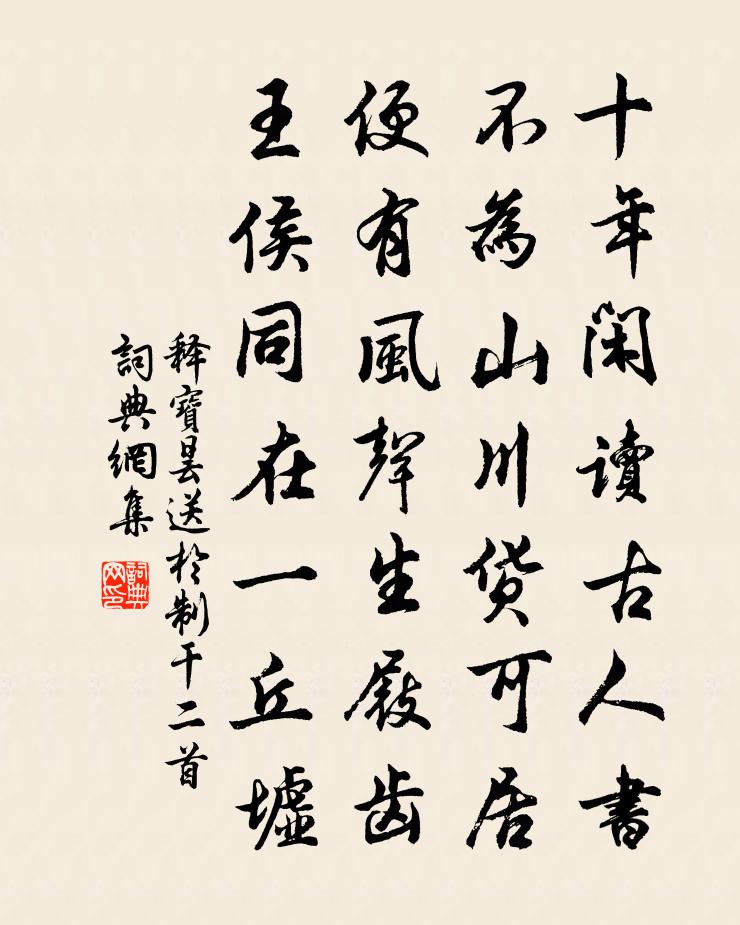 十年閑讀古人書
不為山川貨可居
便有風聲生屐齿
王侯同在一丘墟
释寶曇送於制干二首
詞典網集
詞典
网印